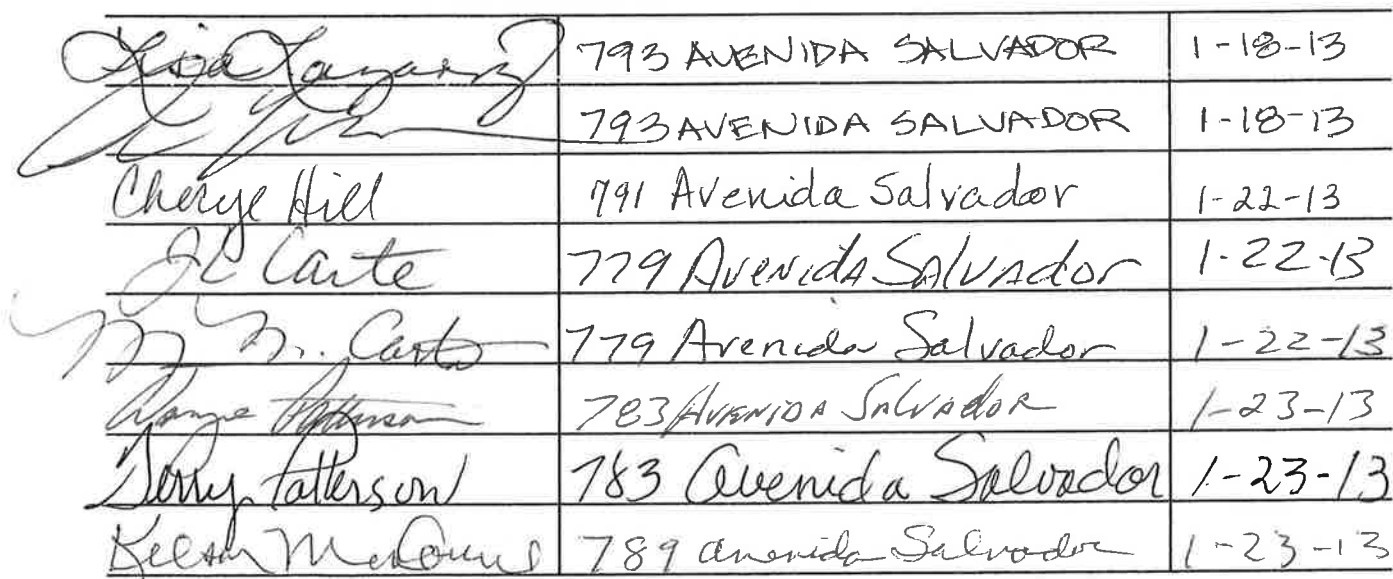 Lisa 793 AVENIDA SALVADOR 1-18-13
793 AVENIDA SALVADOR 1-18-13
Cherye Hill 791 Avenida Salvador 1-22-13
JC Carte 779 Avenida Salvador 1-22-13
M. Carte 779 Avenida Salvador 1-22-13
Patterson 783 Avenida Salvador 1-23-13
Terry Patterson 783 Avenida Salvador 1-23-13
789 Avenida Salvador 1-23-13